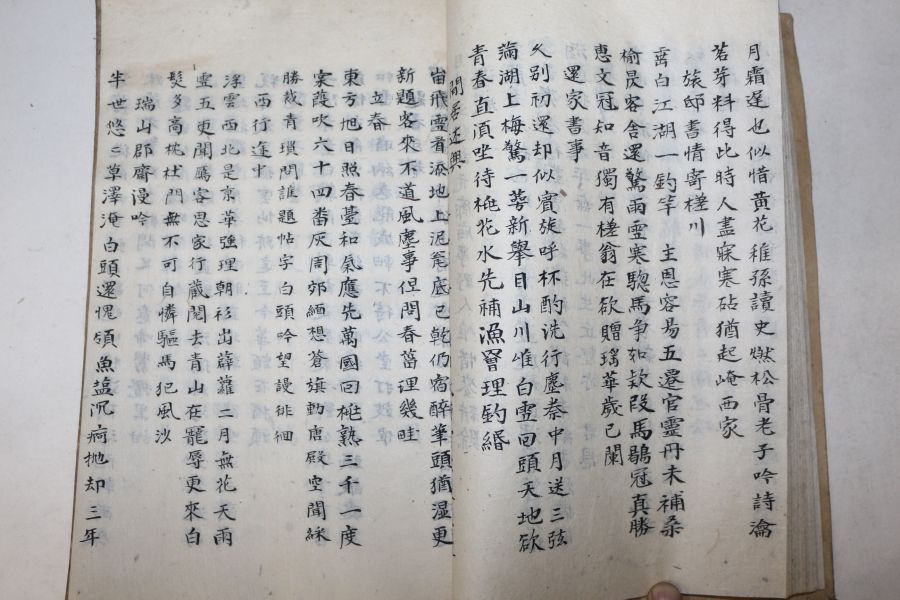 月霜蓬也似惜黃花稚孫讀史燃松骨老子吟詩瀹
茗芽料得此時人盡寐寒砧猶起崦西家
旅邸書情寄槎川
霜白江湖一釣竿 主恩容易五遷官靈丹未補桑
榆晟客舍還驚雨雪寒驄馬爭如款段馬鶡冠真勝
惠文冠知音獨有槎翁在欲贈瑤華歲已闌
還家書事
久別初還却似賓旋呼杯酌洗行塵峚中月送三弦
滿湖上梅驚一蕚新擧目山川惟白雪回頭天地欲
青春直須坐待桃花水先補漁罾理釣緡
閒居述興
宙飛雪看添地上泥瓮底已乾仍宿醉筆頭猶湿更
新題客來不道風塵事但問春菑理幾畦
立春
東方旭日照春臺和氣應先萬國回桃熟三千一度
實葭吹六十四番灰周郊緬想蒼旗動唐殿空聞綵
勝裁青瑣問誰題帖字白頭吟望謾徘徊
西行途中
浮雲西北是京華強理朝衫出薜蘿二月無花天雨
雪五更聞鴈客思家行藏閱去青山在寵辱更來白
髮多高枕杜門無不可自憐驅馬犯風沙
瑞山郡齋漫吟
半世悠〻草澤淹白頭還愧領魚塩沉痾抛却三年